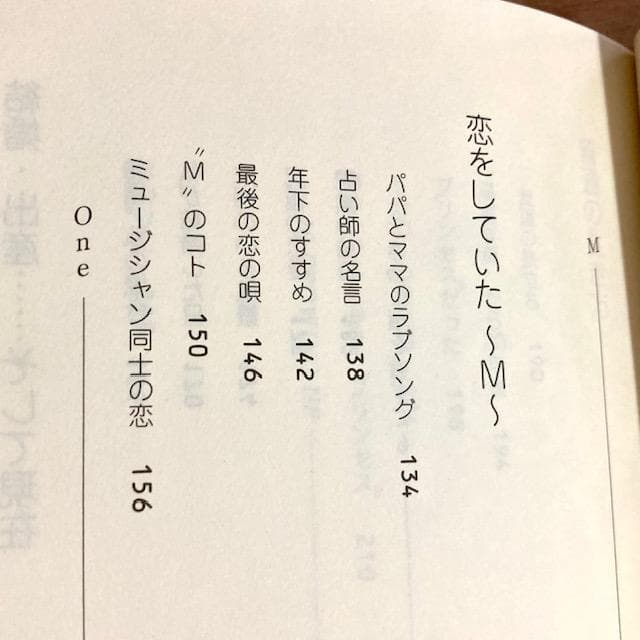 M
恋をしていた 〜M〜
パパとママのラブソング 134
占い師の名言 138
年下のすすめ 142
最後の恋の唄 146
〝M〟のコト 150
ミュージシャン同士の恋 156
One